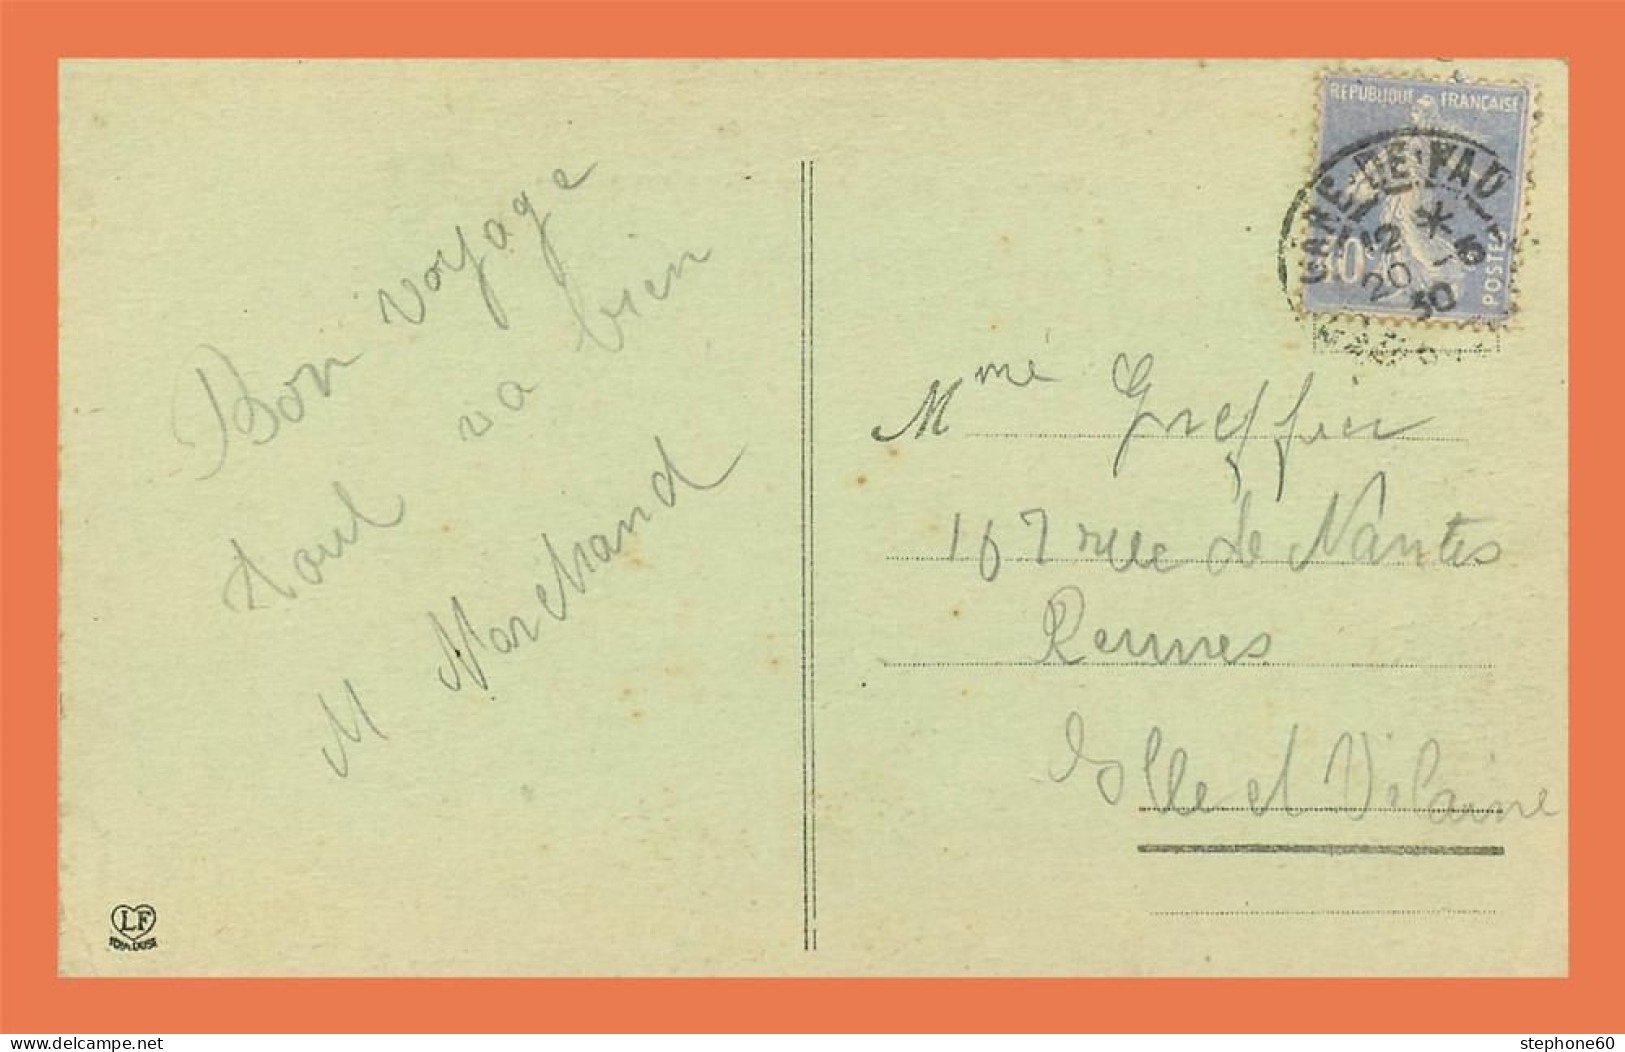 Bon voyage
tout va bien
M Marchand
REPUBLIQUE FRANÇAISE
POSTES
GARE DE PAU
12 *
20 -6
30
Mme Greffier
167 rue de Nantes
Rennes
Ille et Vilaine
LF
TOULOUSE
www.delcampe.net
stephone60